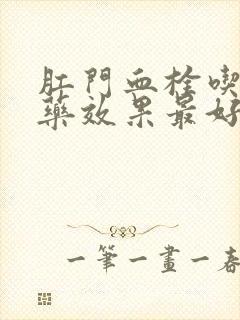 肛門血栓喫
藥效果最好
一筆一畫一春